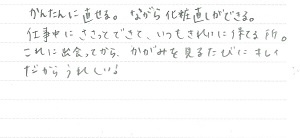 かんたんに直せる。ながら化粧直しができる。
仕事中にささってできて、いつもきれいに保てる所。
これに出会ってから、かがみを見るたびにキレイ
だからうれしい♪